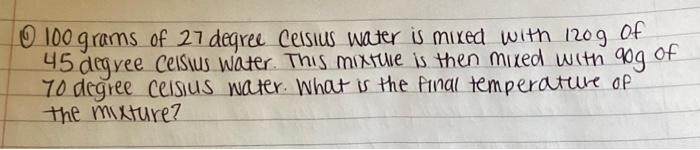 ① 100 grams of 27 degree Celsius water is mixed with 120g of
45 degree Celsius water. This mixture is then mixed with 90g of
70 degree celsius water. What is the final temperature of
the mixture?